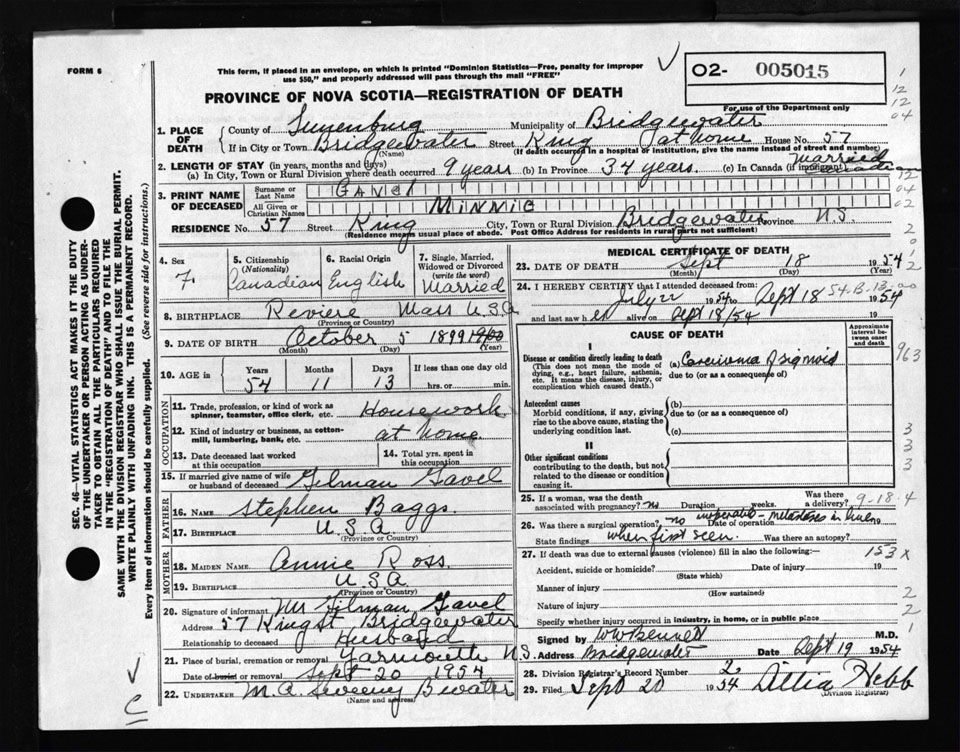 FORM 6
This form, if placed in an envelope, on which is printed "Dominion Statistics—Free, penalty for improper
use $50," and properly addressed will pass through the mail "FREE"
02- 005015
For use of the Department only
PROVINCE OF NOVA SCOTIA—REGISTRATION OF DEATH
SEC. 46—VITAL STATISTICS ACT MAKES IT THE DUTY
OF THE UNDERTAKER OR PERSON ACTING AS UNDER-
TAKER TO OBTAIN ALL THE PARTICULARS REQUIRED
IN THE "REGISTRATION OF DEATH" AND TO FILE THE
SAME WITH THE DIVISION REGISTRAR WHO SHALL ISSUE THE BURIAL PERMIT.
WRITE PLAINLY WITH UNFADING INK. THIS IS A PERMANENT RECORD.
Every item of information should be carefully supplied. (See reverse side for instructions.)
1. PLACE OF DEATH
County of Lunenburg Municipality of Bridgewater
If in City or Town Bridgewater Street King at home House No. 57
(Name) (If death occurred in a hospital or institution, give the name instead of street and number)
2. LENGTH OF STAY (in years, months and days)
(a) In City, Town or Rural Division where death occurred 9 years (b) In Province 34 years. (c) In Canada (if immigrant) married Canadian
3. PRINT NAME OF DECEASED
Surname or Last Name GAVEL
All Given or Christian Names MINNIE
RESIDENCE No. 57 Street King City, Town or Rural Division Bridgewater Province N.S.
(Residence means usual place of abode. Post Office Address for residents in rural parts not sufficient)
4. Sex F
5. Citizenship (Nationality) Canadian
6. Racial Origin English
7. Single, Married, Widowed or Divorced (write the word) Married
8. BIRTHPLACE Reviere Mass U.S.A
(Province or Country)
9. DATE OF BIRTH October 5 1899 1900
(Month) (Day) (Year)
10. AGE in Years 54 Months 11 Days 13 If less than one day
hrs. or min.
OCCUPATION
11. Trade, profession, or kind of work as spinner, teamster, office clerk, etc. Housework
12. Kind of industry or business, as cotton-mill, lumbering, bank, etc. at home
13. Date deceased last worked at this occupation
14. Total yrs. spent in this occupation
15. If married give name of wife or husband of deceased Gilman Gavel
FATHER
16. NAME Stephen Baggs
17. BIRTHPLACE U.S.A.
(Province or Country)
MOTHER
18. MAIDEN NAME Annie Ross.
19. BIRTHPLACE U.S.A
(Province or Country)
20. Signature of informant Mr Gilman Gavel
Address 57 King St Bridgewater
Relationship to deceased Husband
21. Place of burial, cremation or removal Yarmouth N.S.
Date of burial or removal Sept 20 1954
22. UNDERTAKER M.A. Sweeny B'water
(Name and address)
MEDICAL CERTIFICATE OF DEATH
23. DATE OF DEATH Sept 18 1954
(Month) (Day) (Year)
24. I HEREBY CERTIFY that I attended deceased from:
July 22 1954 to Sept 18 1954
and last saw her alive on Sept 18/54 19
54-B-13-00
CAUSE OF DEATH
Approximate interval between onset and death
I
Disease or condition directly leading to death
(This does not mean the mode of dying, e.g., heart failure, asthenia, etc. It means the disease, injury, or complication which caused death.)
(a) Carcinoma of sigmoid
due to (or as a consequence of)
Antecedent causes
Morbid conditions, if any, giving rise to the above cause, stating the underlying condition last.
(b)
due to (or as a consequence of)
(c)
II
Other significant conditions
contributing to the death, but not related to the disease or condition causing it.
25. If a woman, was the death associated with pregnancy? no Duration weeks. Was there a delivery?
9-18-4
26. Was there a surgical operation? no inoperable - metastases in liver Date of operation
State findings when first seen. Was there an autopsy? no
27. If death was due to external causes (violence) fill in also the following:—
Accident, suicide or homicide? Date of injury 19
(State which)
Manner of injury
(How sustained)
Nature of injury
Specify whether injury occurred in industry, in home, or in public place
Signed by WW Bennett M.D.
Address Bridgewater Date Sept 19 1954
28. Division Registrar's Record Number 2
29. Filed Sept 20 1954 Attia Hebb
(Division Registrar)
963
153 X